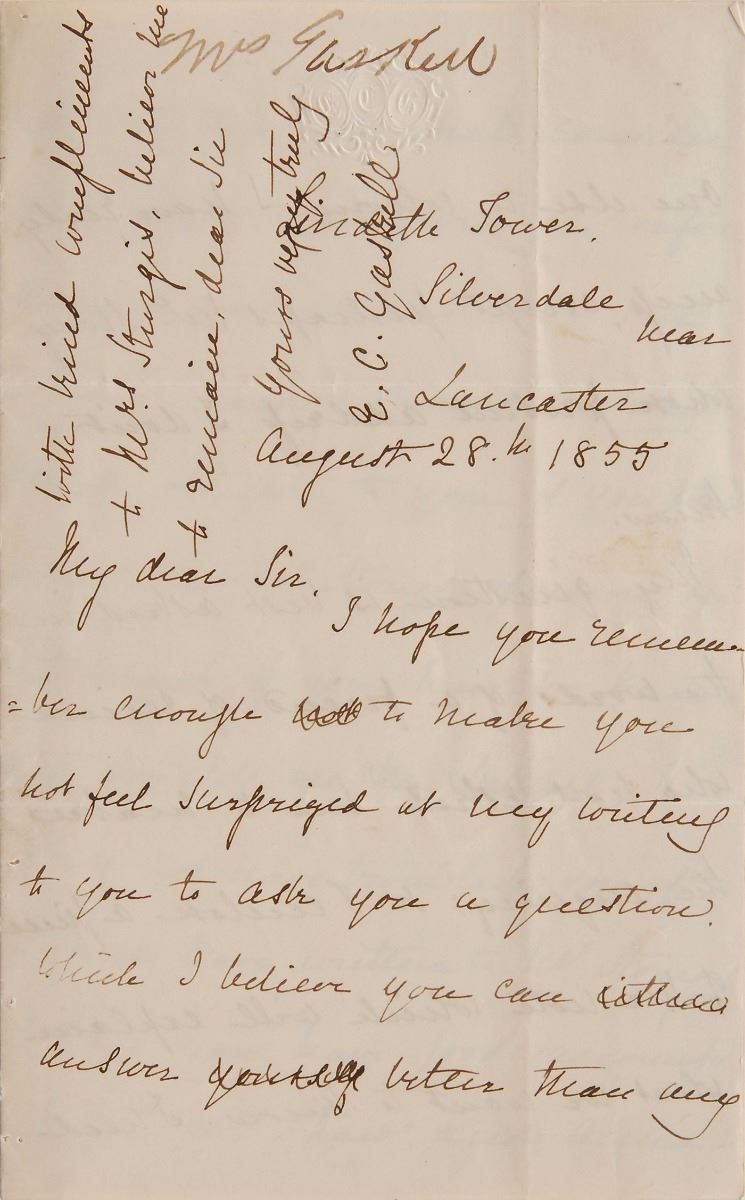 Mrs Gaskell
Lindeth Tower.
Silverdale
near
Lancaster
August 28.th 1855
My dear Sir.
I hope you remem-
=ber enough not to make you
not feel surprized at my writing
to you to ask you a question.
which I believe you can either
answer yourself better than any
with kind compliments
to Mrs Sturgis, believe me
to remain, dear Sir
Yours very truly
E. C. Gaskell